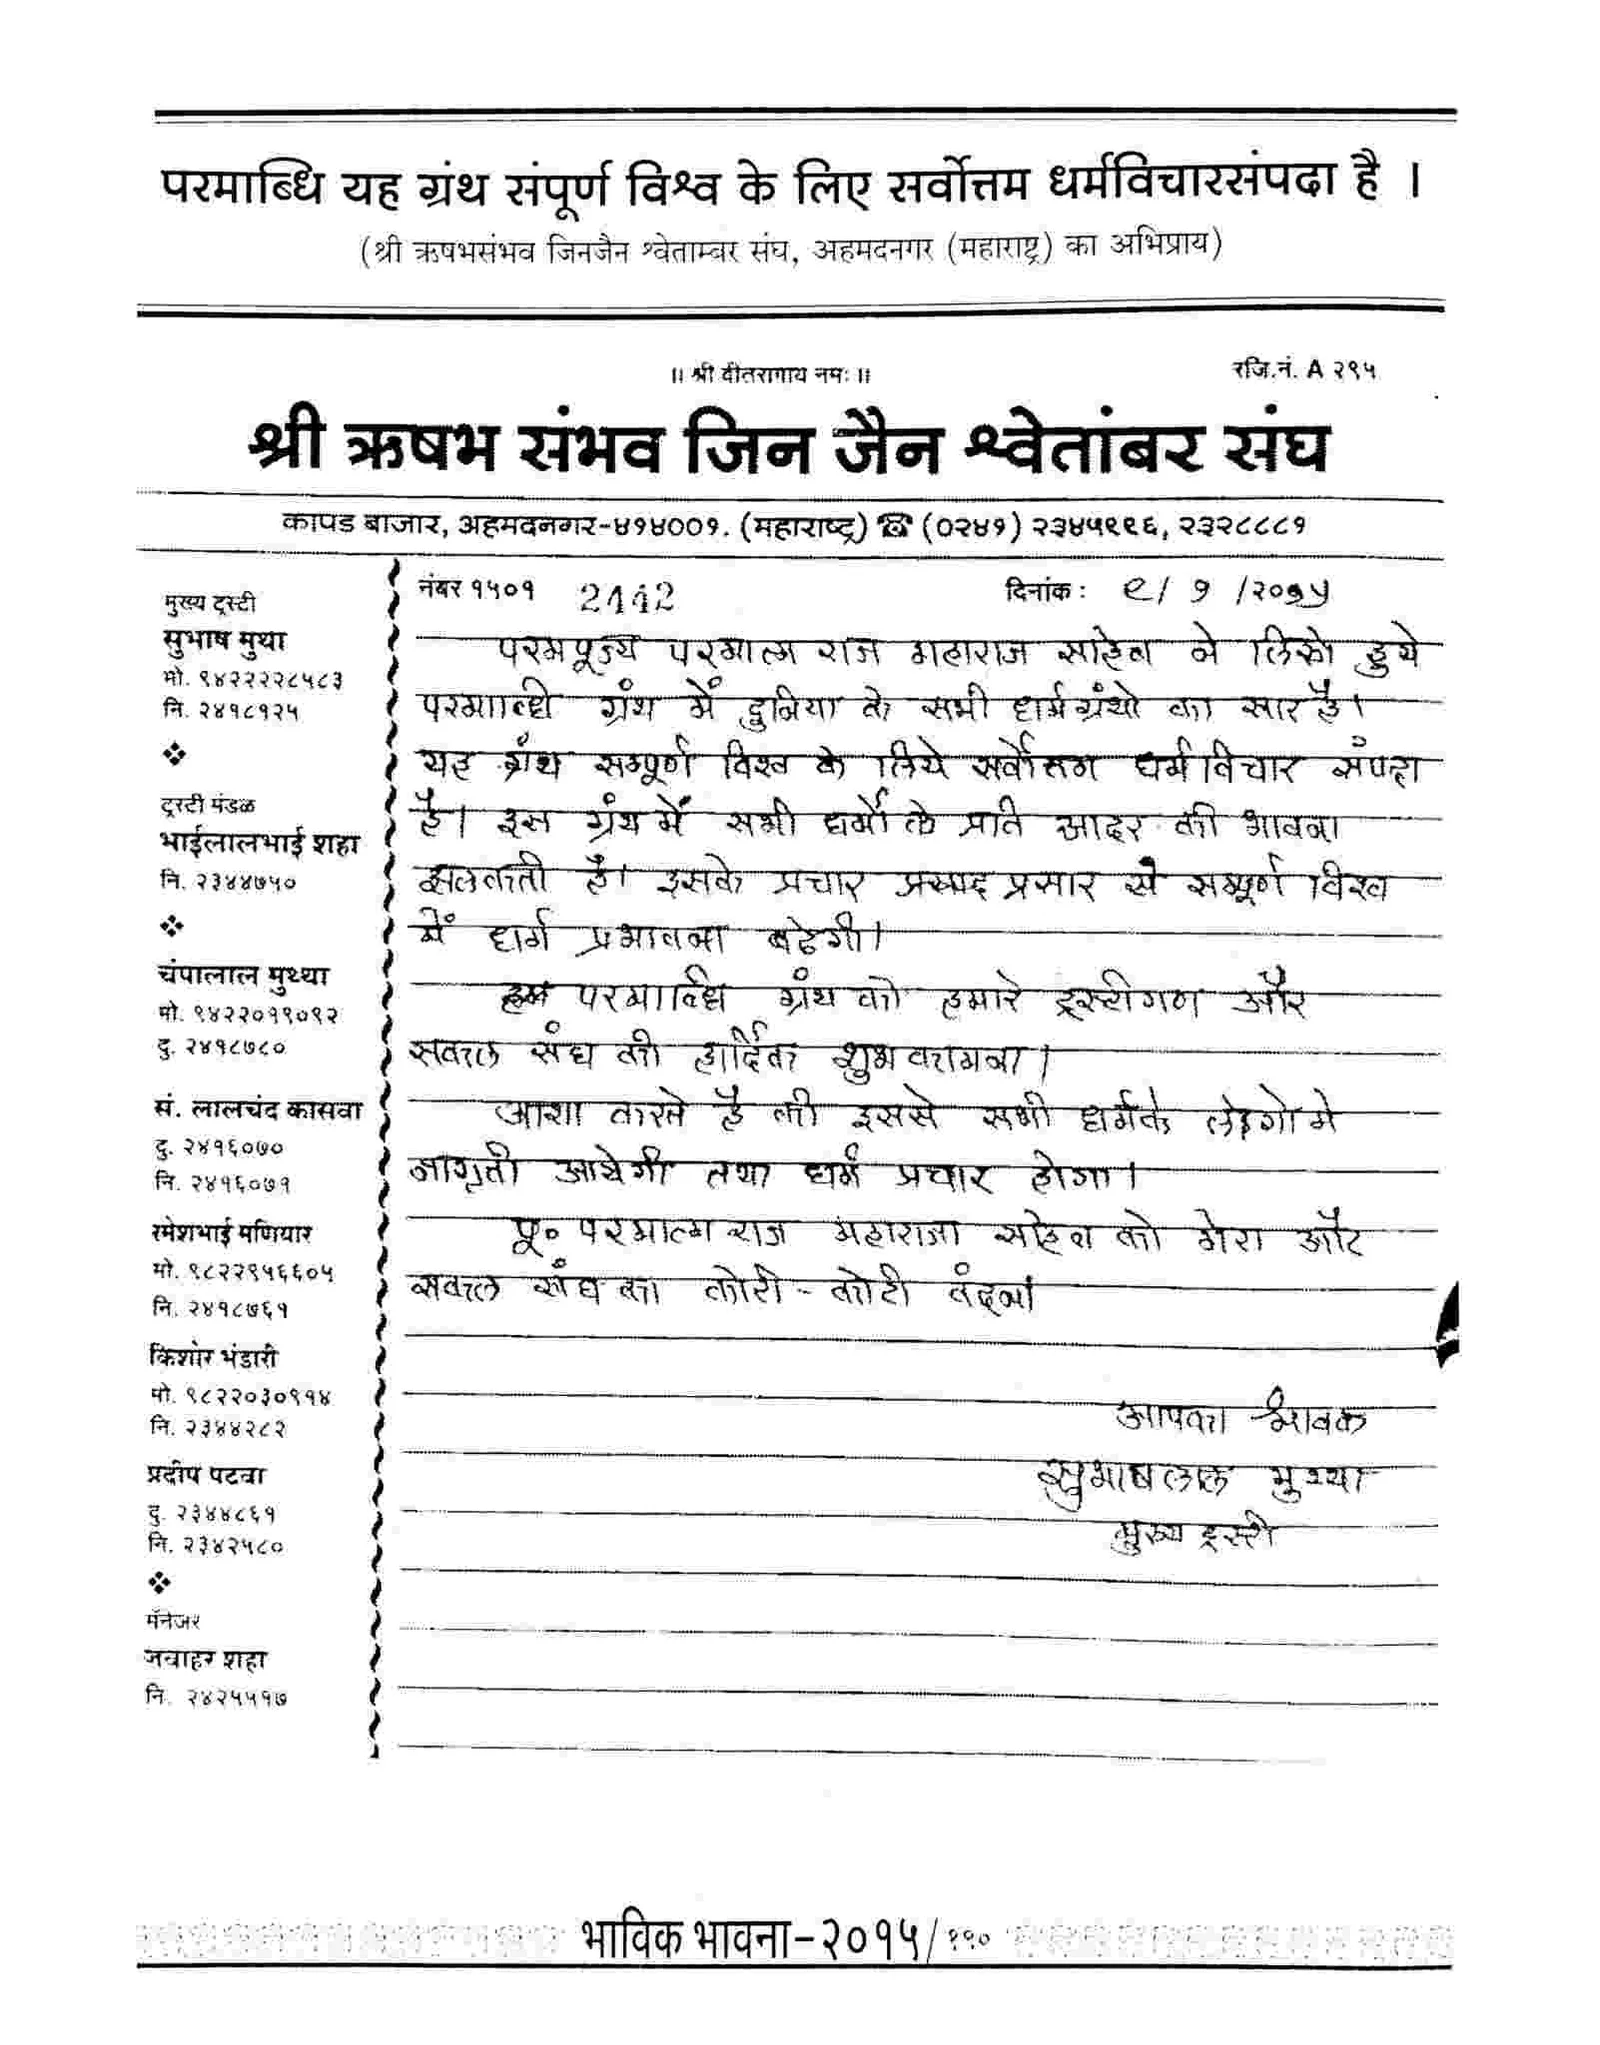 परमाब्धि यह ग्रंथ संपूर्ण विश्व के लिए सर्वोत्तम धर्मविचारसंपदा है ।
(श्री ऋषभसंभव जिनजैन श्वेताम्बर संघ, अहमदनगर (महाराष्ट्र) का अभिप्राय)
॥ श्री वीतरागाय नमः ॥
रजि.नं. A २९५
श्री ऋषभ संभव जिन जैन श्वेतांबर संघ
कापड बाजार, अहमदनगर-४१४००१. (महाराष्ट्र) ☎ (०२४१) २३४५९९६, २३२८८८१
मुख्य ट्रस्टी
सुभाष मुथा
मो. ९४२२२२८५८३
नि. २४१८१२५
❖
ट्रस्टी मंडळ
भाईलालभाई शहा
नि. २३४४७५०
❖
चंपालाल मुथ्था
मो. ९४२२०१९०९२
दु. २४१८७८०
सं. लालचंद कासवा
दु. २४१६०७०
नि. २४१६०७१
रमेशभाई मणियार
मो. ९८२२९५६६०५
नि. २४१८७६१
किशोर भंडारी
मो. ९८२२०३०९१४
नि. २३४४२८२
प्रदीप पटवा
दु. २३४४८६१
नि. २३४२५८०
❖
मॅनेजर
जवाहर शहा
नि. २४२५५१७
नंबर १५०१ 2112 दिनांक : ९/ १ /२०१५
परमपूज्य परमात्म राज महाराज साहेब ने लिखे हुये
परमाब्धी ग्रंथ में दुनिया के सभी धर्मग्रंथो का सार है।
यह ग्रंथ सम्पूर्ण विश्व के लिये सर्वोत्तम धर्मविचार संपदा
है। इस ग्रंथ में सभी धर्मो के प्रति आदर की भावना
झलकती है। इसके प्रचार प्रसार से सम्पूर्ण विश्व
में धर्म प्रभावना बढेगी।
परमाब्धि ग्रंथ को हमारे ट्रस्टीगण और
सकल संघ की हार्दिक शुभकामना।
आशा करते है की इससे सभी धर्मके लोगो मे
जागृती आयेगी तथा धर्म प्रचार होगा।
पू० परमात्म राज महाराजा साहेब को मेरा और
सकल संघ का कोटी - कोटी वंदना
आपका श्रावक
सुभाषलाल मुथ्था
मुख्य ट्रस्टी
भाविक भावना-२०१५/१९०